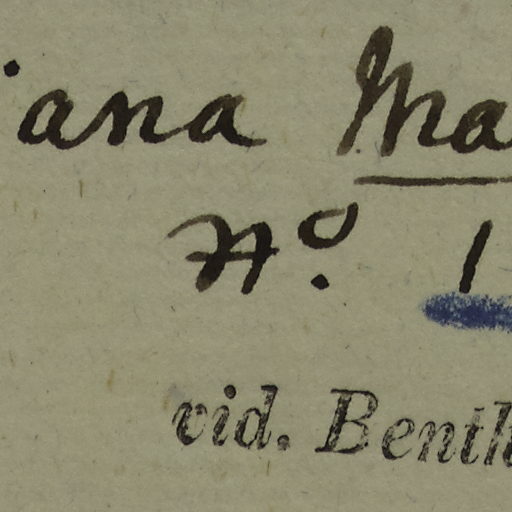 iana Ma
No. 1
vid. Benth